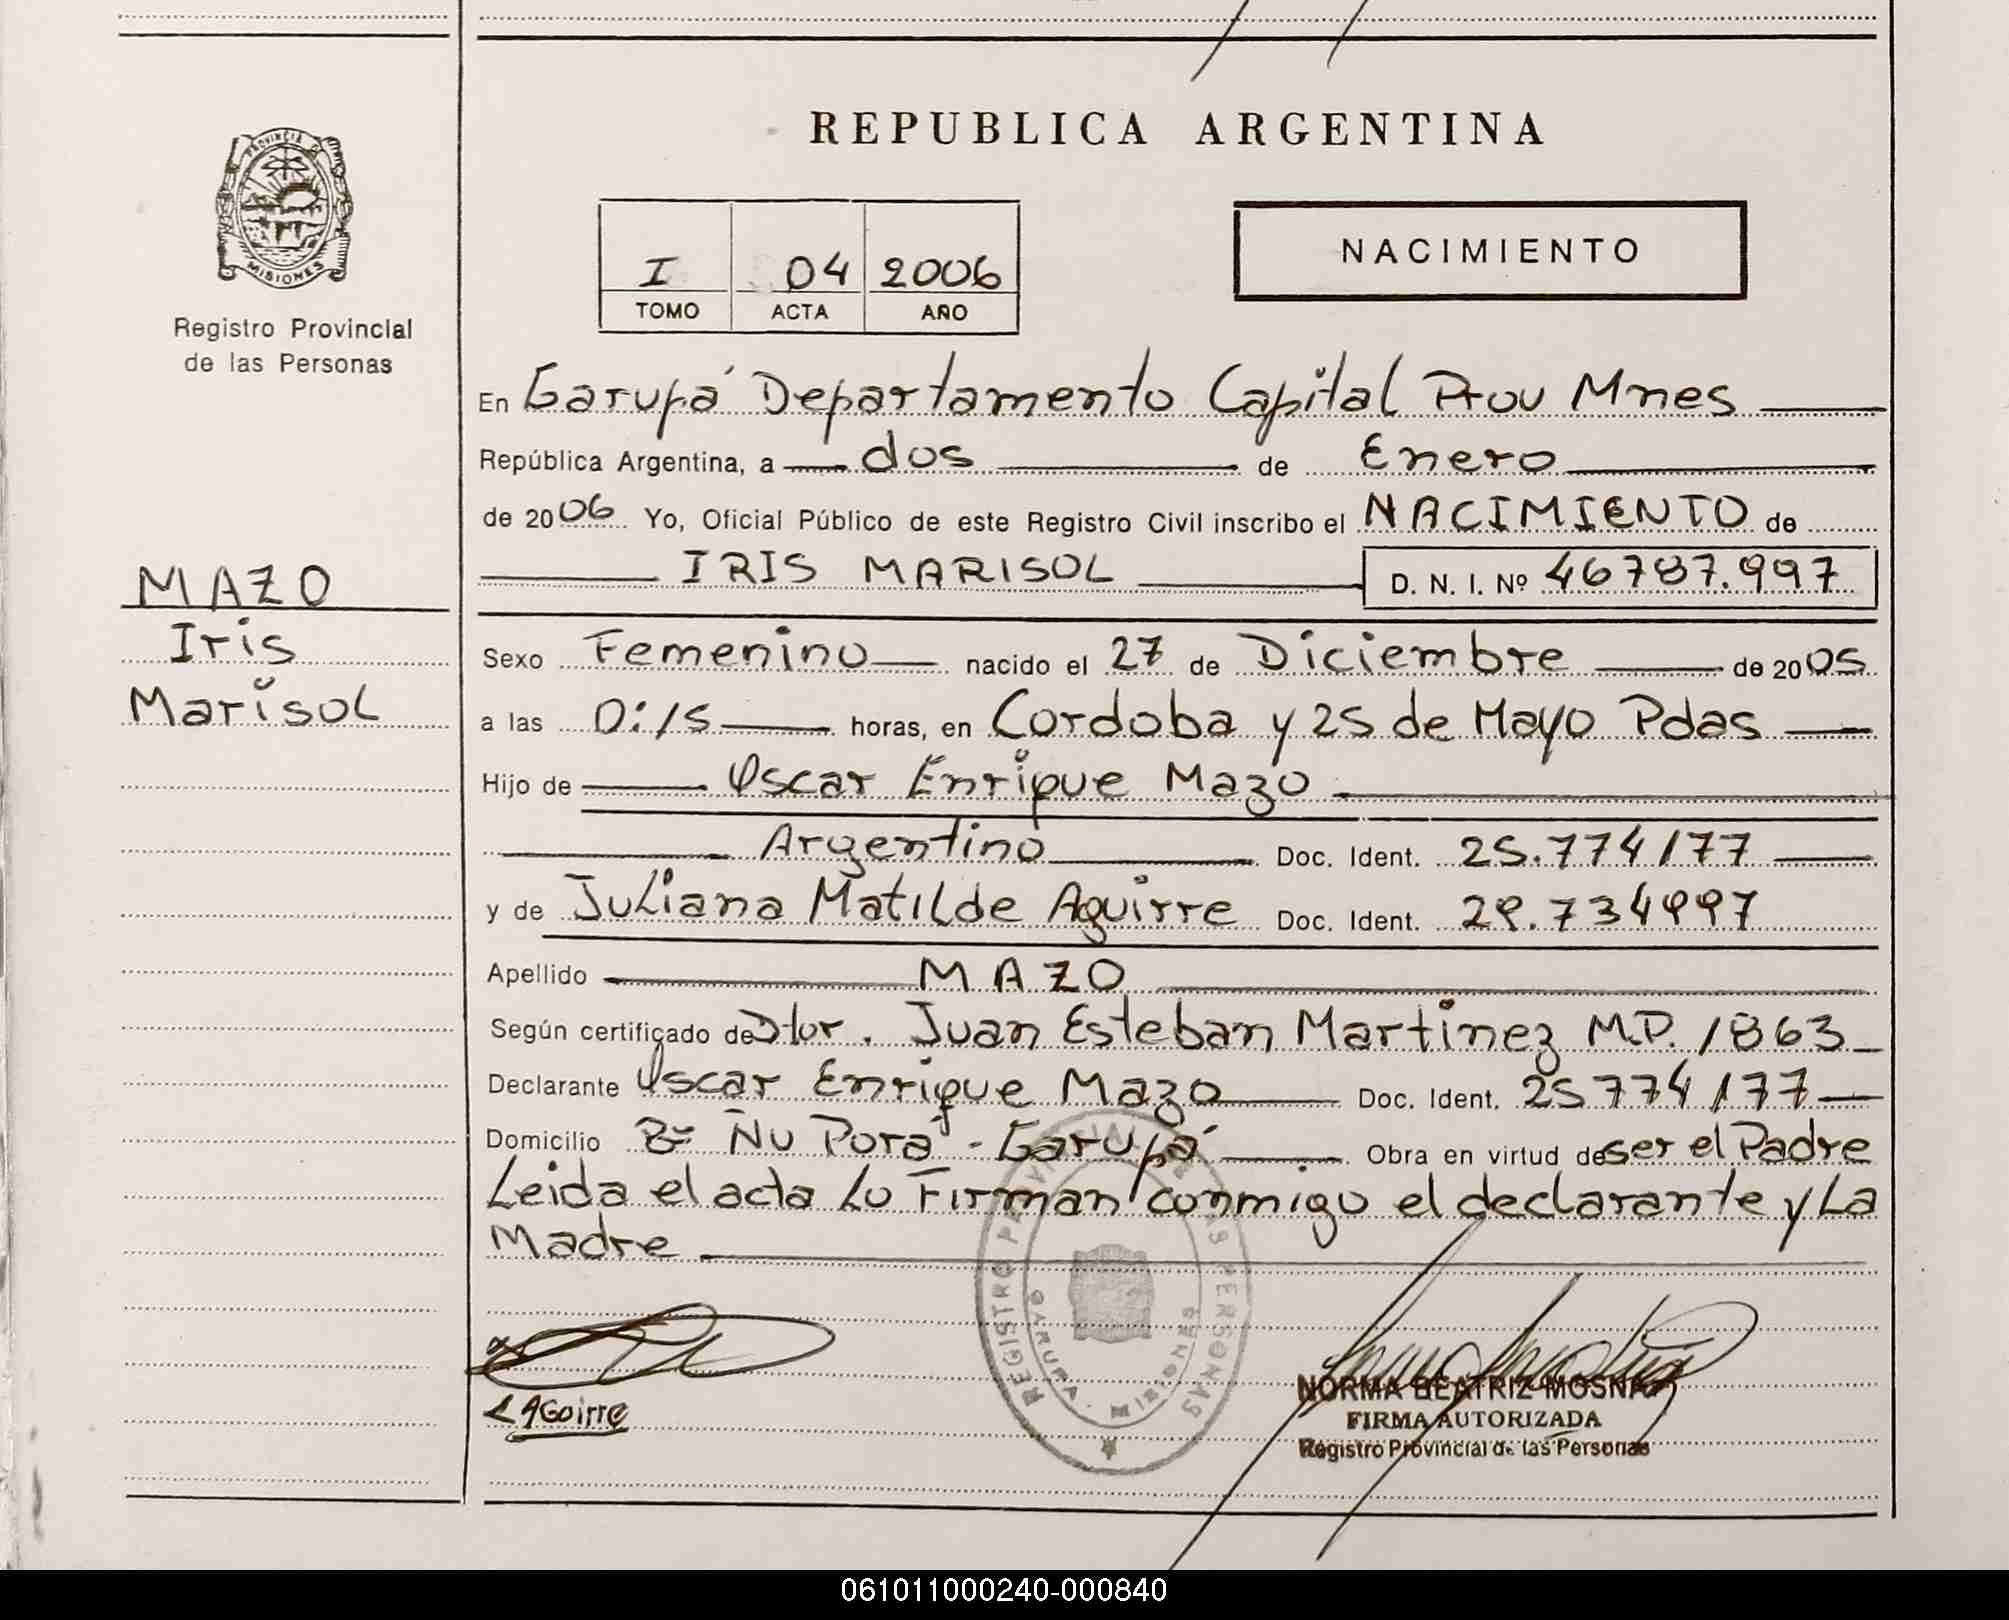 REPUBLICA ARGENTINA
PROVINCIA DE MISIONES
Registro Provincial
de las Personas
I 04 2006
TOMO ACTA AÑO
NACIMIENTO
MAZO
Iris
Marisol
En Garupá Departamento Capital Prov Mnes
República Argentina, a dos de Enero
de 2006 Yo, Oficial Público de este Registro Civil inscribo el NACIMIENTO de
IRIS MARISOL D. N. I. Nº 46787.997
Sexo Femenino nacido el 27 de Diciembre de 2005
a las 0:15 horas, en Cordoba y 25 de Mayo Pdas
Hijo de Oscar Enrique Mazo
Argentino Doc. Ident. 25.774177
y de Juliana Matilde Aguirre Doc. Ident. 29.734997
Apellido MAZO
Según certificado de Dtor. Juan Esteban Martinez M.P. 1863
Declarante Oscar Enrique Mazo Doc. Ident. 25774177
Domicilio Bº Ñu Porá - Garupá Obra en virtud de ser el Padre
Leida el acta Lo Firman conmigo el declarante y La
Madre
REGISTRO PROVINCIAL DE LAS PERSONAS
GARUPA - MISIONES
L Agoirre
NORMA BEATRIZ MOSNA
FIRMA AUTORIZADA
Registro Provincial de las Personas
061011000240-000840